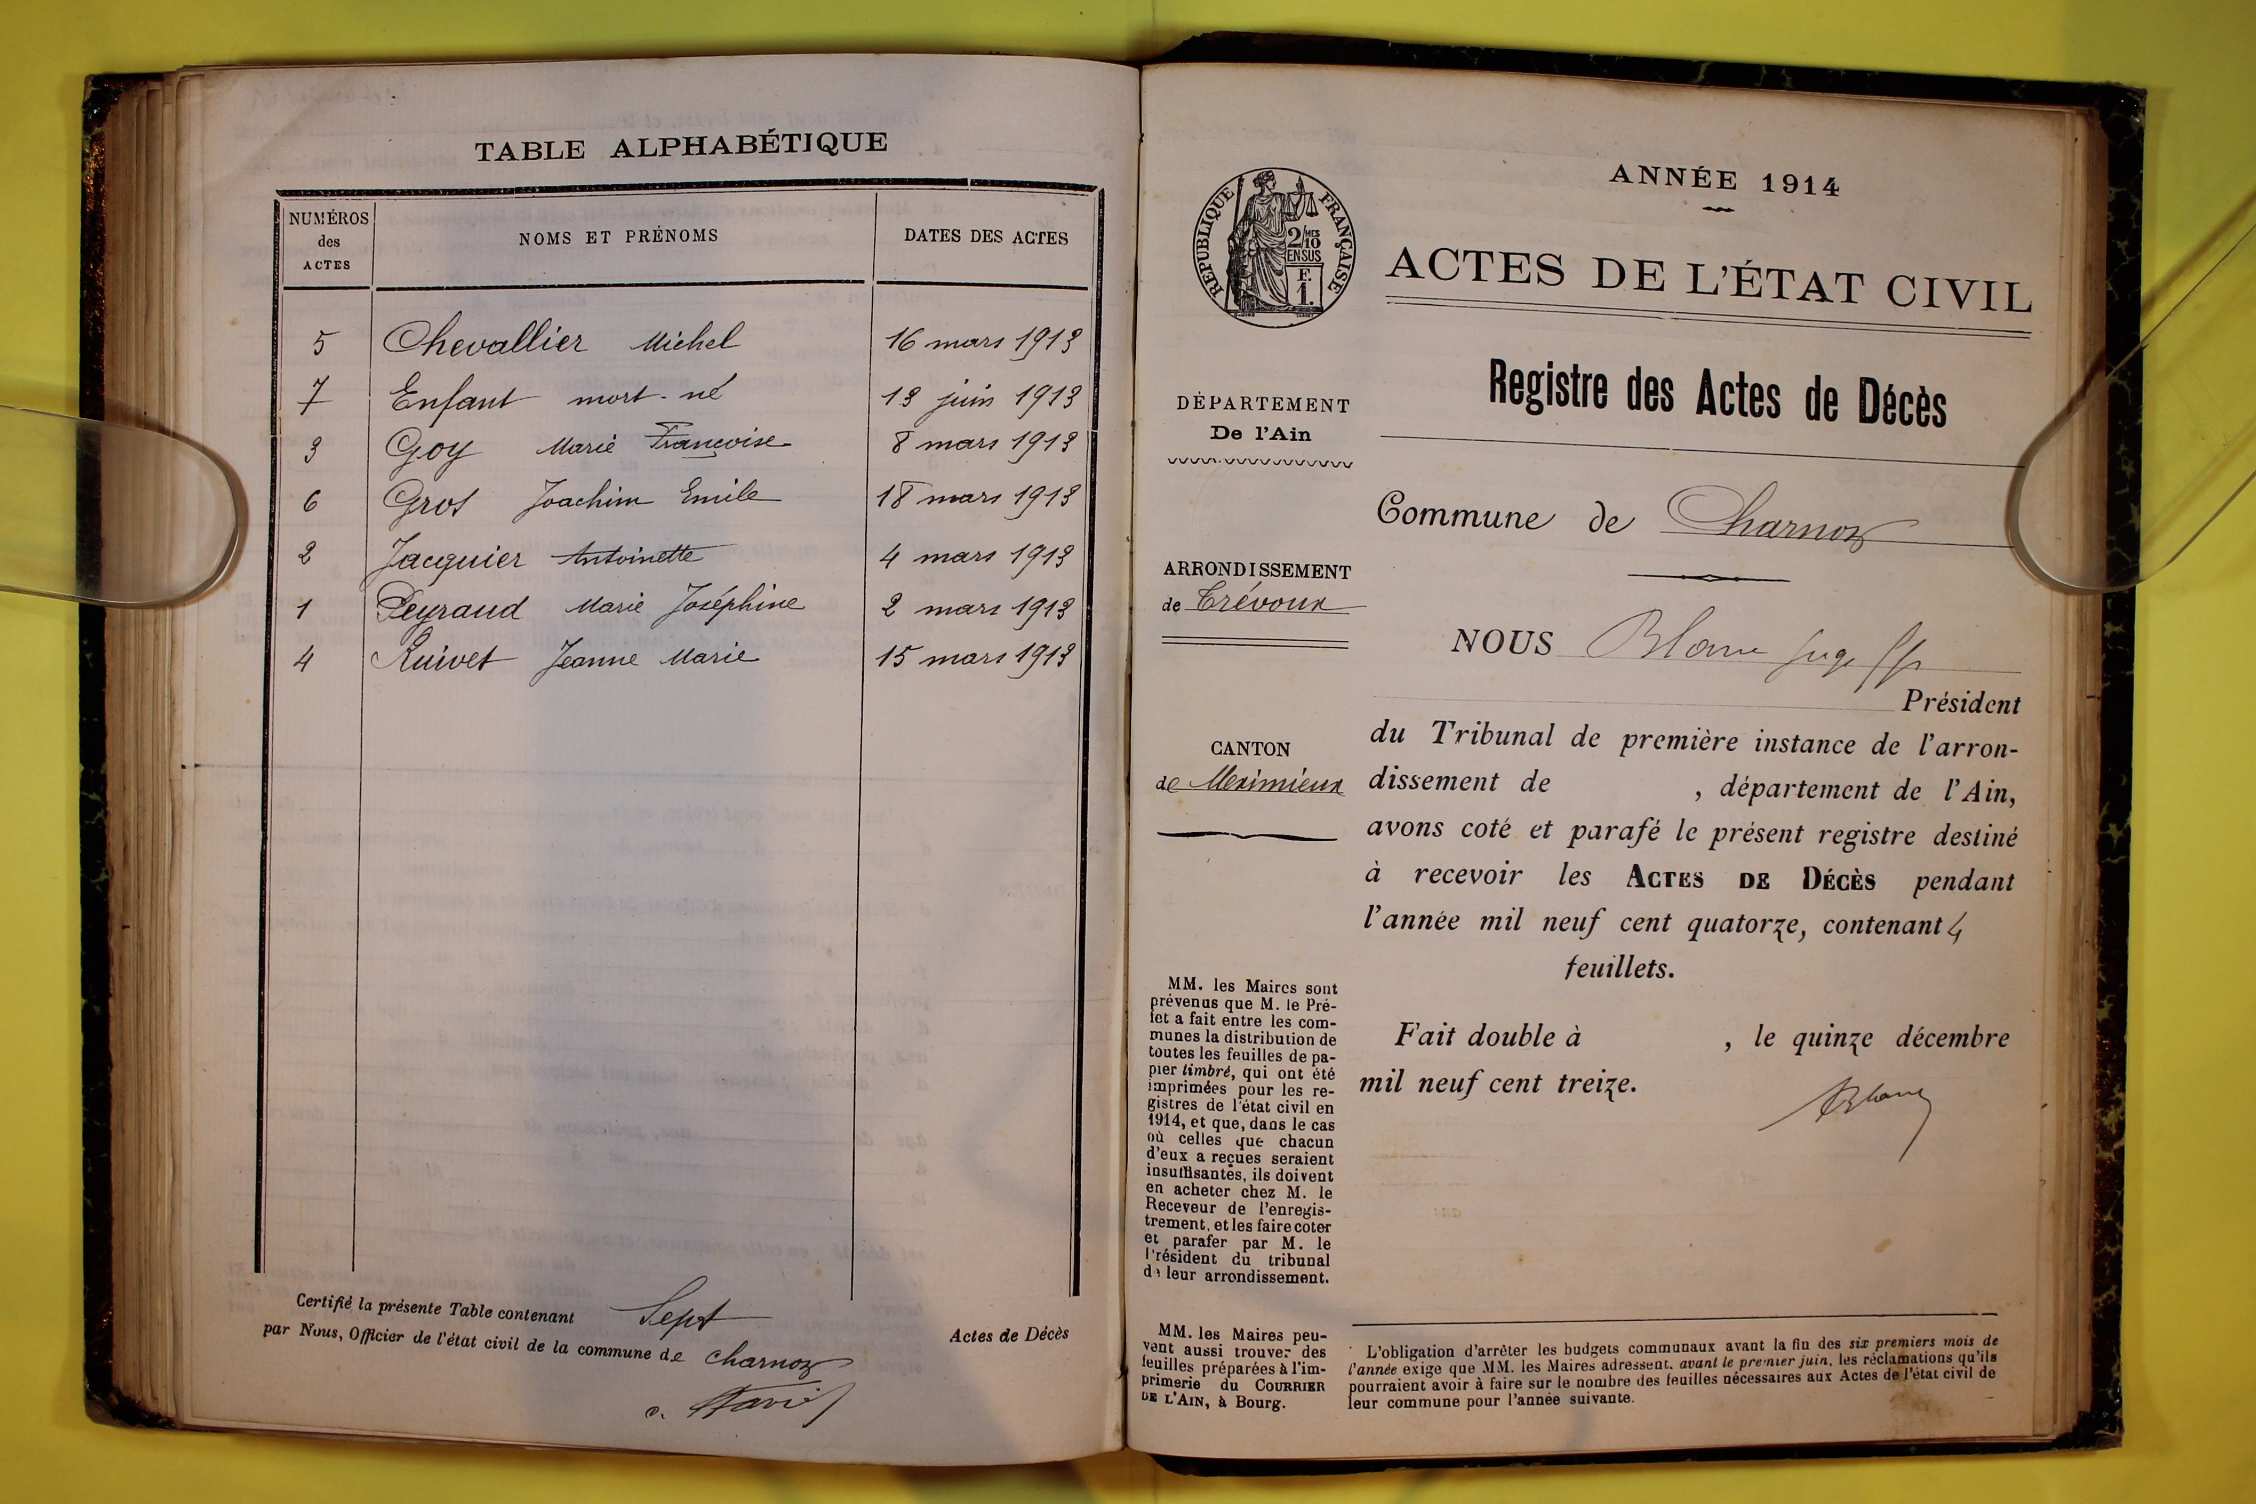 TABLE ALPHABÉTIQUE
NUMÉROS des ACTES NOMS ET PRÉNOMS DATES DES ACTES
5 Chevallier Michel 16 mars 1913
7 Enfant mort-né 13 juin 1913
3 Goy Marie Françoise 8 mars 1913
6 Gros Joachim Emile 18 mars 1913
2 Jacquier Antoinette 4 mars 1913
1 Peyraud Marie Joséphine 2 mars 1913
4 Ruivet Jeanne Marie 15 mars 1913
Certifié la présente Table contenant Sept Actes de Décès
par Nous, Officier de l'état civil de la commune de Charnoz
ANNÉE 1914
RÉPUBLIQUE FRANÇAISE
2/10 MES
EN SUS
F.
1.
ACTES DE L'ÉTAT CIVIL
Registre des Actes de Décès
DÉPARTEMENT
De l'Ain
Commune de Charnoz
ARRONDISSEMENT
de Trévoux
CANTON
de Meximieux
NOUS Blanc Juge
Président
du Tribunal de première instance de l'arron-
dissement de , département de l'Ain,
avons coté et parafé le présent registre destiné
à recevoir les ACTES DE DÉCÈS pendant
l'année mil neuf cent quatorze, contenant 4
feuillets.
Fait double à , le quinze décembre
mil neuf cent treize.
Blanc
MM. les Maires sont
prévenus que M. le Pré-
fet a fait entre les com-
munes la distribution de
toutes les feuilles de pa-
pier timbré, qui ont été
imprimées pour les re-
gistres de l'état civil en
1914, et que, dans le cas
où celles que chacun
d'eux a reçues seraient
insuffisantes, ils doivent
en acheter chez M. le
Receveur de l'enregis-
trement, et les faire coter
et parafer par M. le
Président du tribunal
de leur arrondissement.
MM. les Maires peu-
vent aussi trouver des
feuilles préparées à l'im-
primerie du COURRIER
DE L'AIN, à Bourg.
L'obligation d'arrêter les budgets communaux avant la fin des six premiers mois de
l'année exige que MM. les Maires adressent, avant le premier juin, les réclamations qu'ils
pourraient avoir à faire sur le nombre des feuilles nécessaires aux Actes de l'état civil de
leur commune pour l'année suivante.